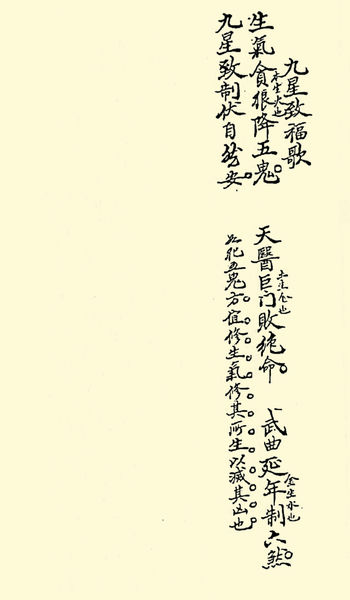 九星致福歌
生氣貪狼降五鬼。天醫巨门敗絕命。武曲延年制六煞。
木生火也
土生金也
金生水也
九星致制伏自然安。
如犯五鬼方。宜。修。生。氣。修。其。所。生。以。减。其。凶。也